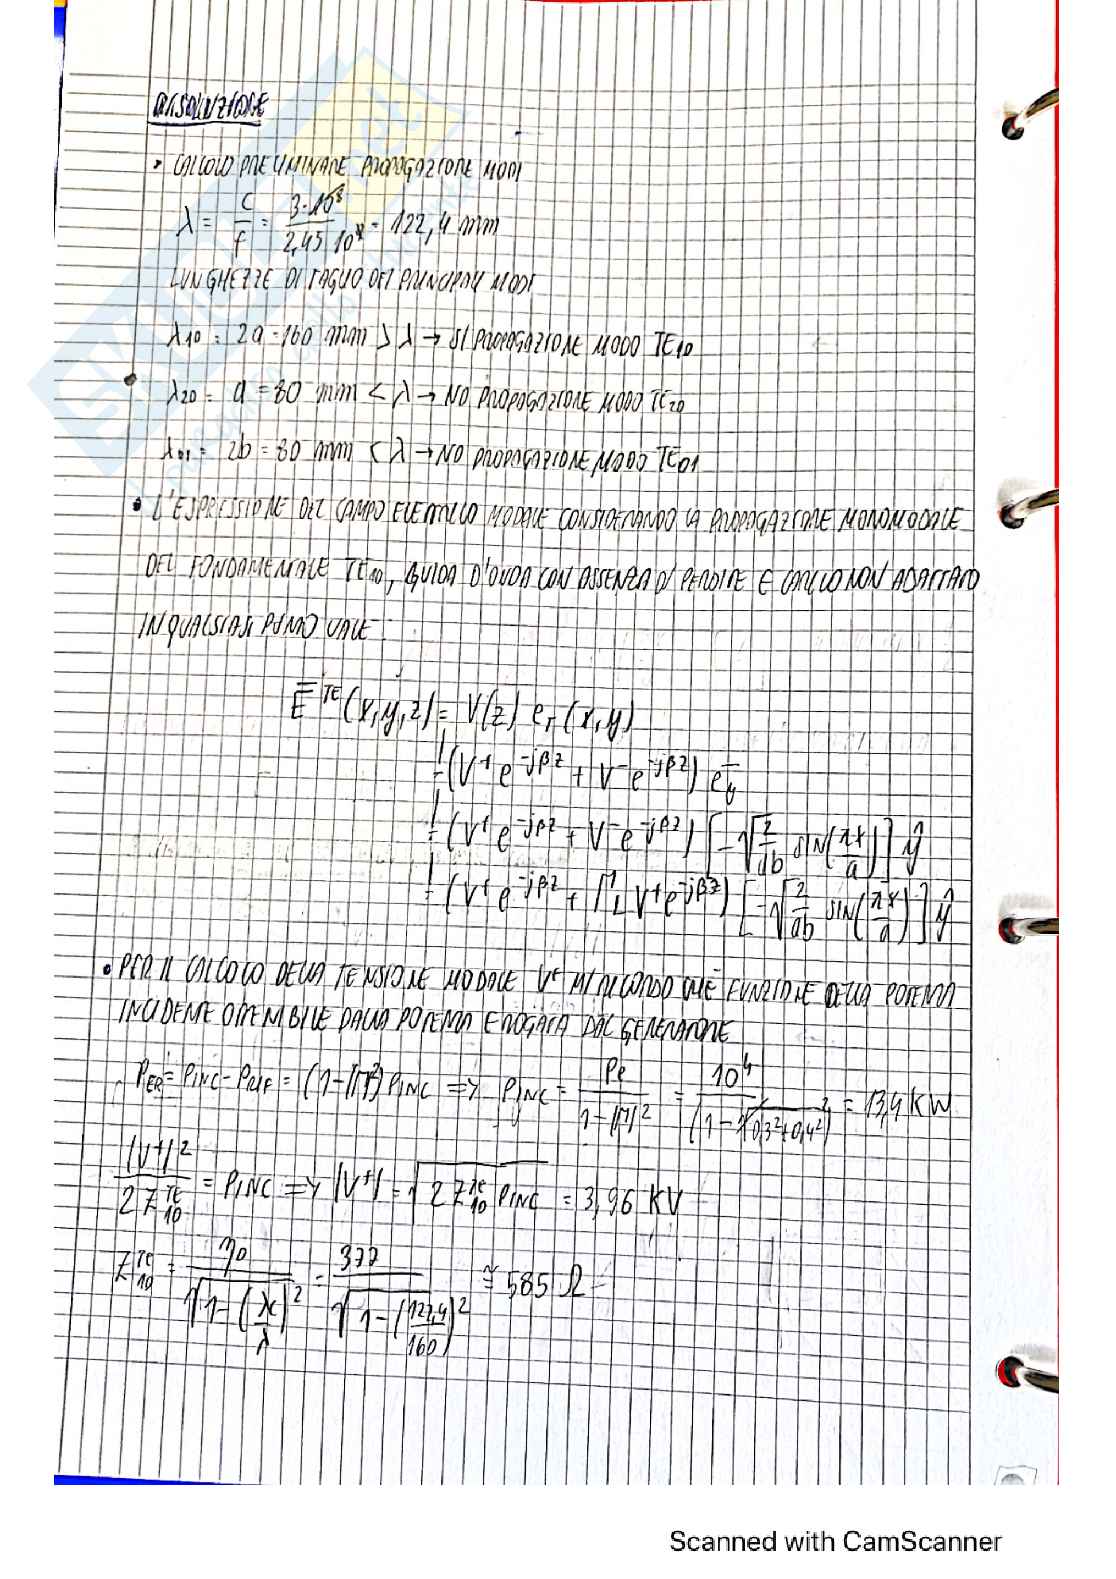 RISOLUZIONE
• CALCOLO PRELIMINARE PROPOGAZIONE MODI
λ = c/f = 3·10⁸ / 2,45 10⁹ = 122,4 mm
LUNGHEZZE DI TAGLIO DEI PRINCIPALI MODI
λ10 = 2a = 160 mm > λ → SI PROPOGAZIONE MODO TE10
λ20 = a = 80 mm < λ → NO PROPOGAZIONE MODO TE20
λ01 = 2b = 80 mm < λ → NO PROPOGAZIONE MODO TE01
• L'ESPRESSIONE DEL CAMPO ELETTRICO MODALE CONSIDERANDO LA PROPOGAZIONE MONOMODALE
DEL FONDAMENTALE TE10, GUIDA D'ONDA CON ASSENZA DI PERDITE E CARICO NON ADATTATO
IN QUALSIASI PUNTO VALE:
E̅^TE(x,y,z) = V(z) e_T(x,y)
= (V⁺ e^-jβz + V⁻ e^-jβz) e̅_y
= (V⁺ e^-jβz + V⁻ e^-jβz) [-√(2/ab) SIN(πx/a)] ŷ
= (V⁺ e^-jβz + Γ_L V⁺ e^-jβz) [-√(2/ab) SIN(πx/a)] ŷ
• PER IL CALCOLO DELLA TENSIONE MODALE V⁺ MI RICORDO CHE È FUNZIONE DELLA POTENZA
INCIDENTE OTTENIBILE DALLA POTENZA EROGATA DAL GENERATORE
PER = PINC - PRIF = (1-|Γ|²) PINC => PINC = Pe / 1-|Γ|² = 10⁴ / (1-√0,3²+0,4²²) = 13,4 KW
|V⁺|² / 2 Z10^TE = PINC => |V⁺| = √(2 Z10^TE PINC) = 3,96 KV
Z10^TE = η0 / √(1-(λc/λ)²) = 377 / √(1-(122,4/160)²) ≅ 585 Ω
Scanned with CamScanner